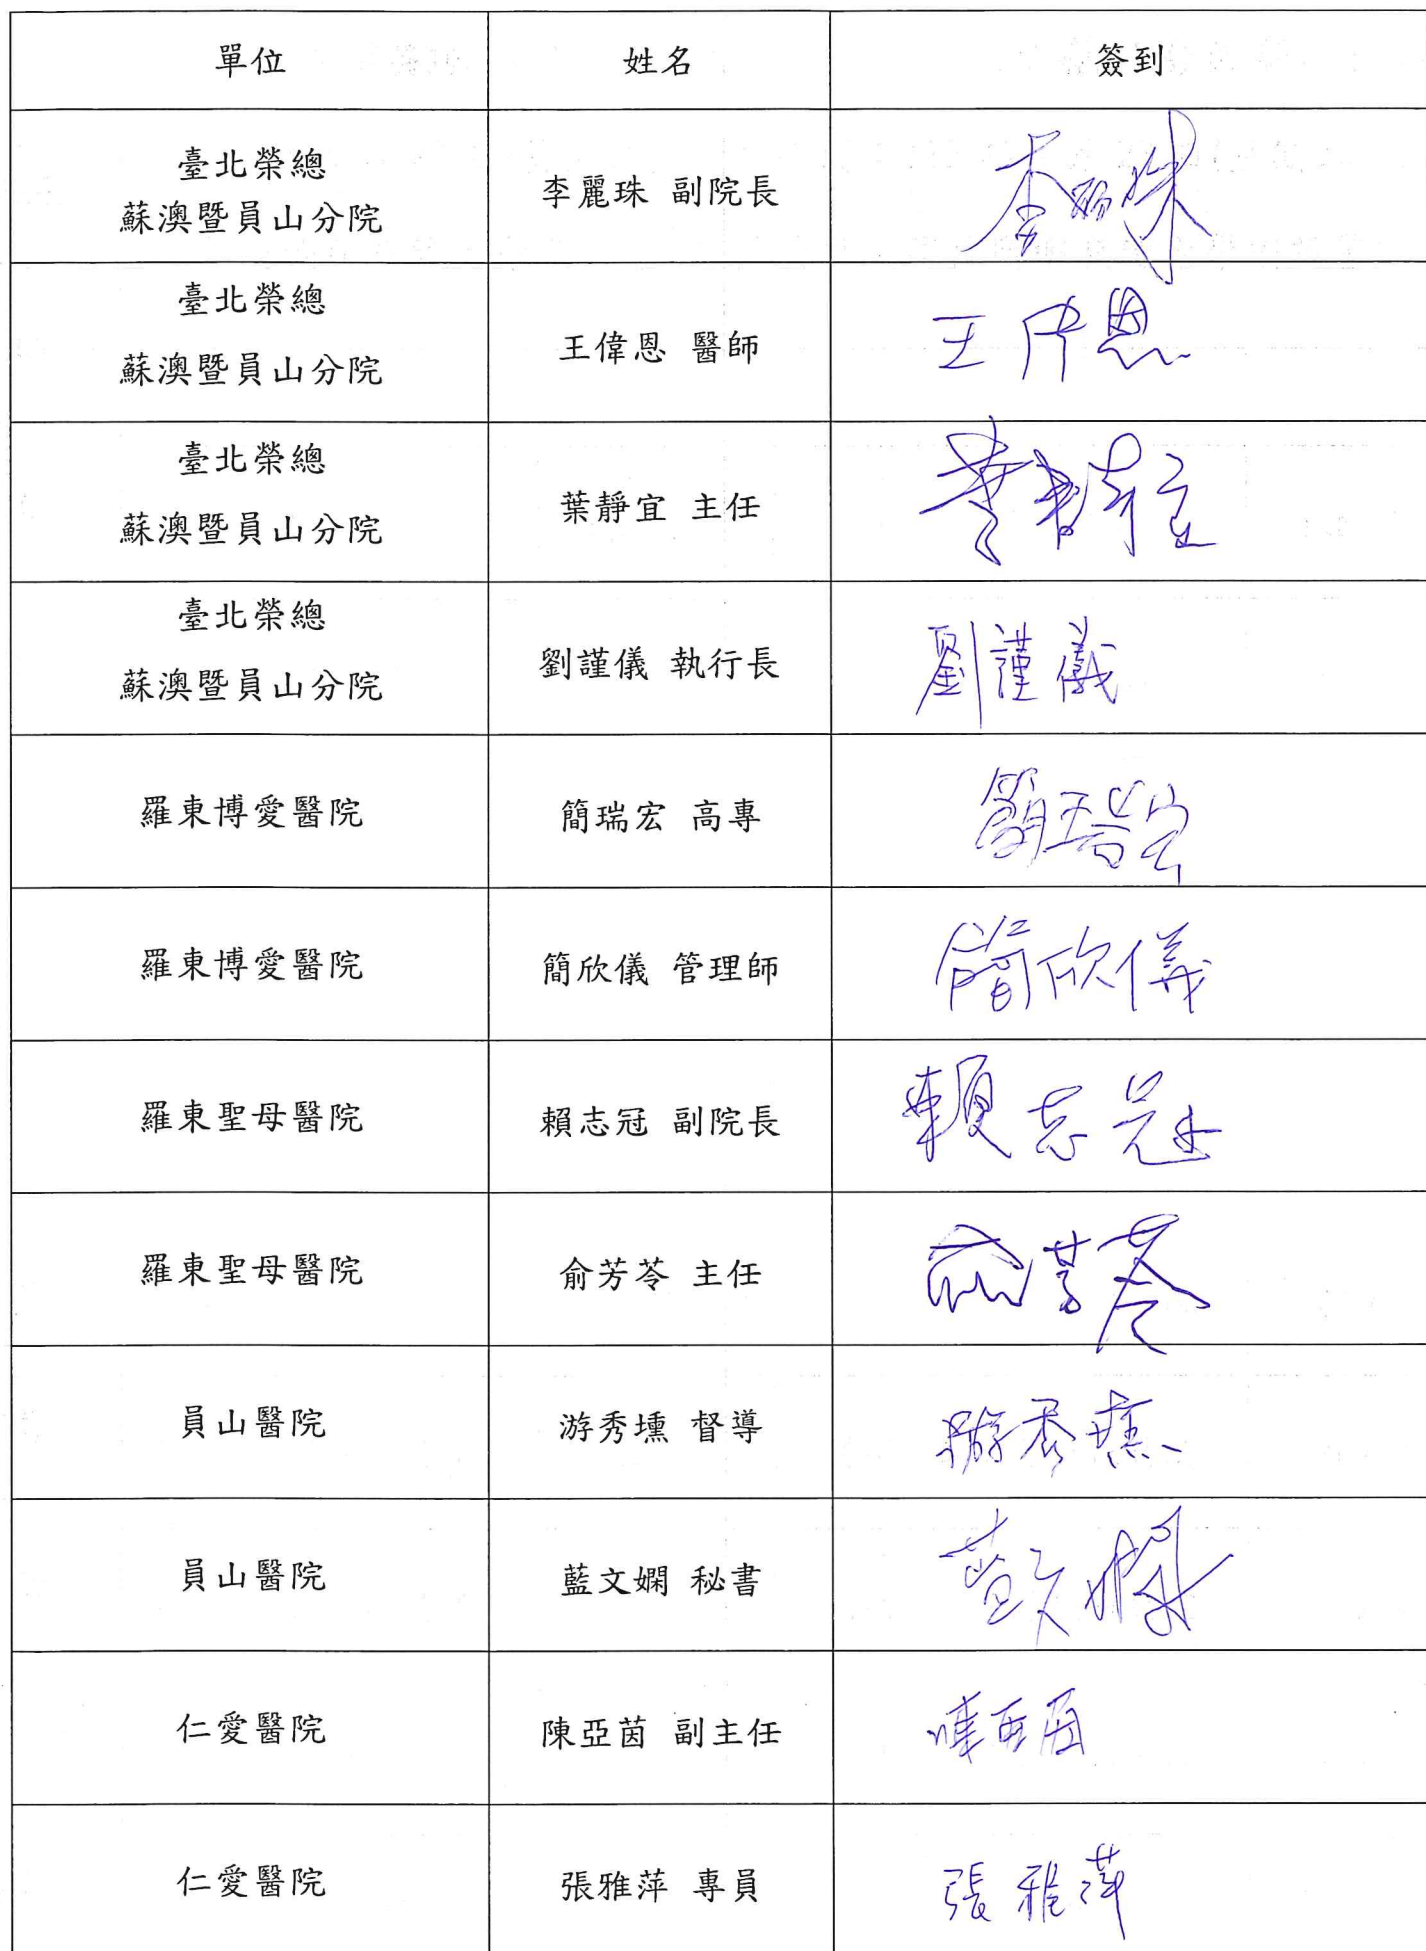 單位 姓名 簽到
臺北榮總
蘇澳暨員山分院 李麗珠 副院長 李麗珠
臺北榮總
蘇澳暨員山分院 王偉恩 醫師 王偉恩
臺北榮總
蘇澳暨員山分院 葉靜宜 主任 葉靜宜
臺北榮總
蘇澳暨員山分院 劉謹儀 執行長 劉謹儀
羅東博愛醫院 簡瑞宏 高專 簡瑞宏
羅東博愛醫院 簡欣儀 管理師 簡欣儀
羅東聖母醫院 賴志冠 副院長 賴志冠
羅東聖母醫院 俞芳苓 主任 俞芳苓
員山醫院 游秀壎 督導 游秀壎
員山醫院 藍文嫻 秘書 藍文嫻
仁愛醫院 陳亞茵 副主任 陳亞茵
仁愛醫院 張雅萍 專員 張雅萍